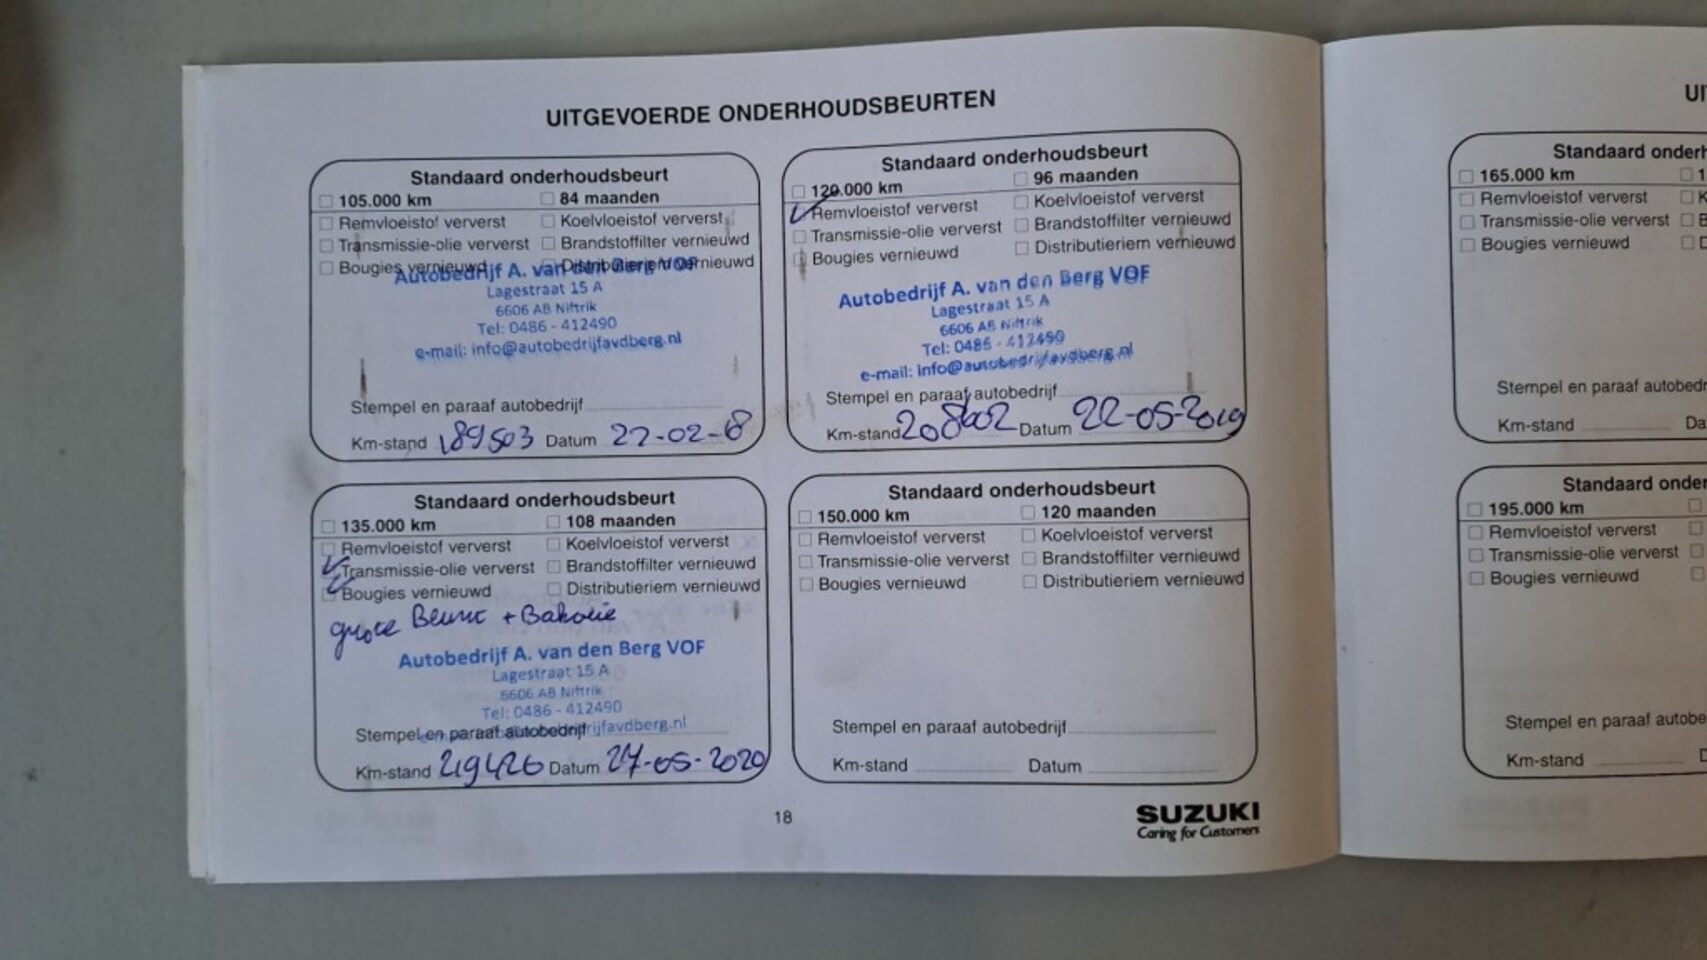 UITGEVOERDE ONDERHOUDSBEURTEN
Standaard onderhoudsbeurt
105.000 km 84 maanden
Remvloeistof ververst Koelvloeistof ververst
Transmissie-olie ververst Brandstoffilter vernieuwd
Bougies vernieuwd Distributieriem vernieuwd
Autobedrijf A. van den Berg VOF
Lagestraat 15 A
6606 AB Niftrik
Tel: 0486 - 412490
e-mail: info@autobedrijfavdberg.nl
Stempel en paraaf autobedrijf
Km-stand 189503 Datum 22-02-18
Standaard onderhoudsbeurt
120.000 km 96 maanden
Remvloeistof ververst Koelvloeistof ververst
Transmissie-olie ververst Brandstoffilter vernieuwd
Bougies vernieuwd Distributieriem vernieuwd
Autobedrijf A. van den Berg VOF
Lagestraat 15 A
6606 AB Niftrik
Tel: 0486 - 412490
e-mail: info@autobedrijfavdberg.nl
Stempel en paraaf autobedrijf
Km-stand 208602 Datum 22-05-2019
Standaard onderhoudsbeurt
135.000 km 108 maanden
Remvloeistof ververst Koelvloeistof ververst
Transmissie-olie ververst Brandstoffilter vernieuwd
Bougies vernieuwd Distributieriem vernieuwd
grote Beurt + Bakolie
Autobedrijf A. van den Berg VOF
Lagestraat 15 A
6606 AB Niftrik
Tel: 0486 - 412490
Stempel en paraaf autobedrijf
Km-stand 219426 Datum 27-05-2020
Standaard onderhoudsbeurt
150.000 km 120 maanden
Remvloeistof ververst Koelvloeistof ververst
Transmissie-olie ververst Brandstoffilter vernieuwd
Bougies vernieuwd Distributieriem vernieuwd
Stempel en paraaf autobedrijf
Km-stand Datum
18
SUZUKI
Caring for Customers
UI
Standaard onderh
165.000 km 1
Remvloeistof ververst K
Transmissie-olie ververst B
Bougies vernieuwd D
Stempel en paraaf autobedr
Km-stand Da
Standaard onder
195.000 km
Remvloeistof ververst
Transmissie-olie ververst
Bougies vernieuwd
Stempel en paraaf autobe
Km-stand D